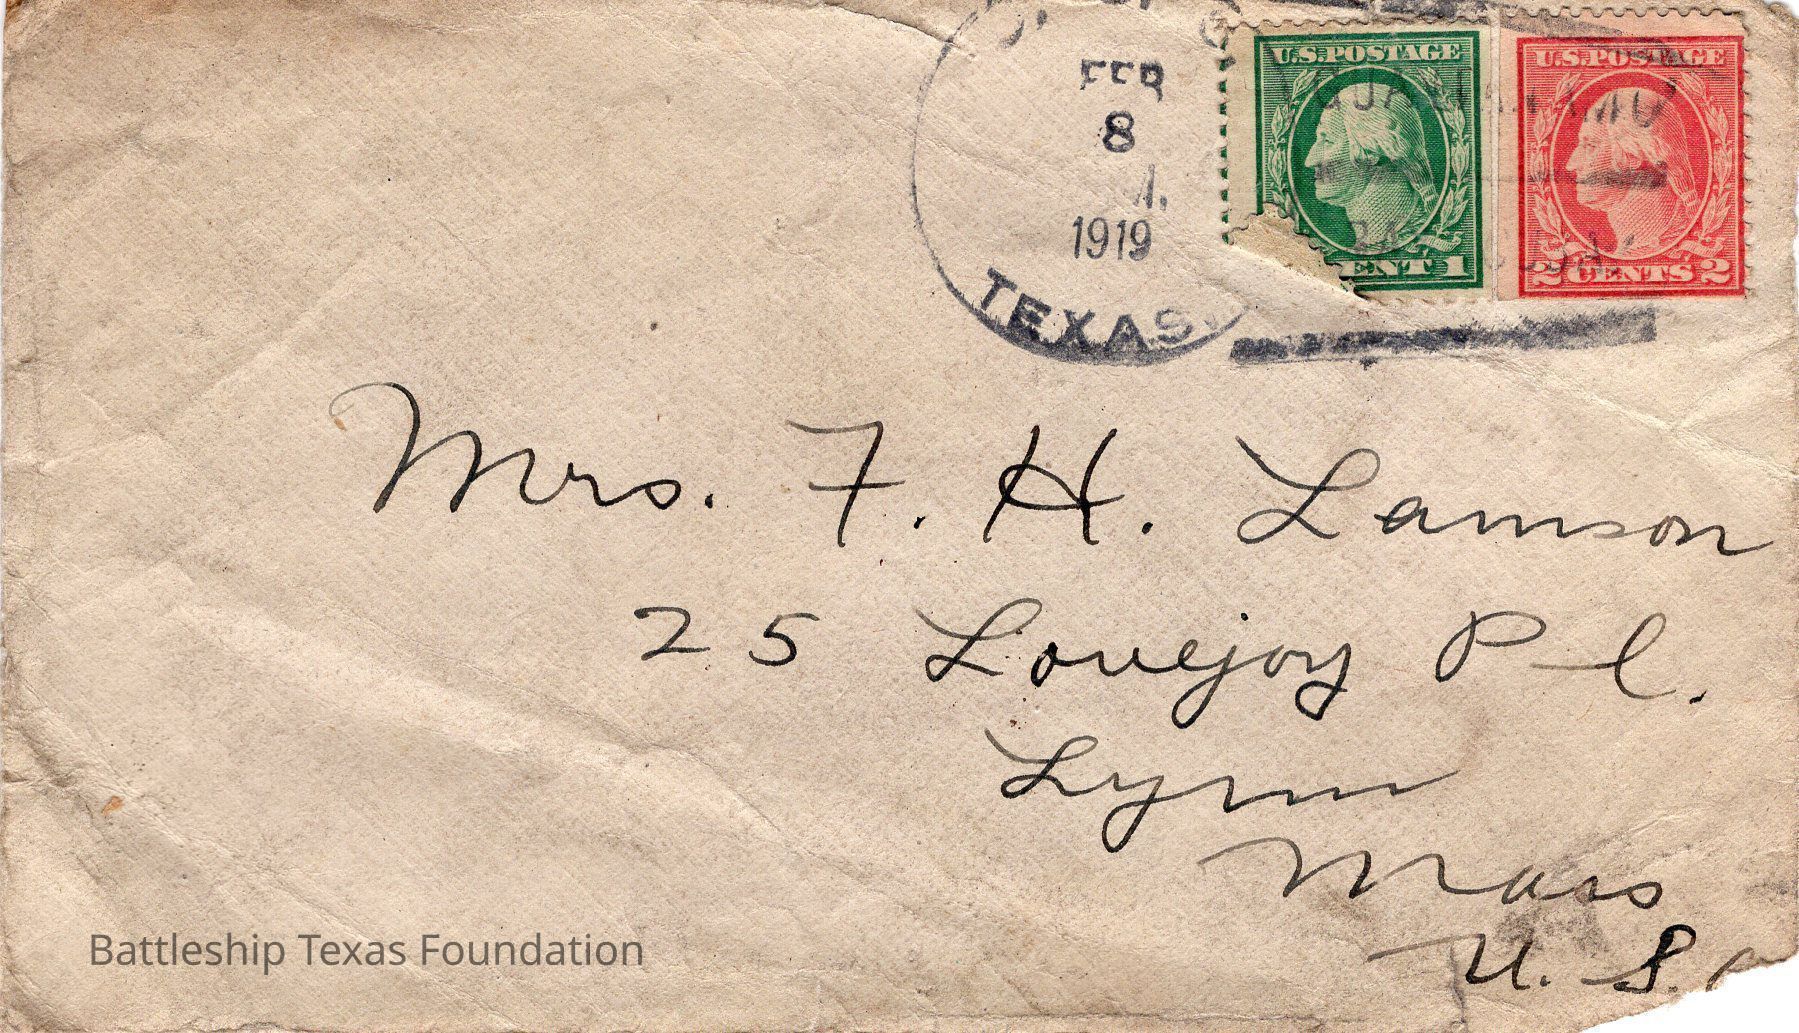 FEB
8
1919
TEXAS.
U.S. POSTAGE
CENT 1
U.S. POSTAGE
2 CENTS 2
Mrs. F. H. Lamson
25 Lovejoy Pl.
Lynn
Mass
U. S.
Battleship Texas Foundation